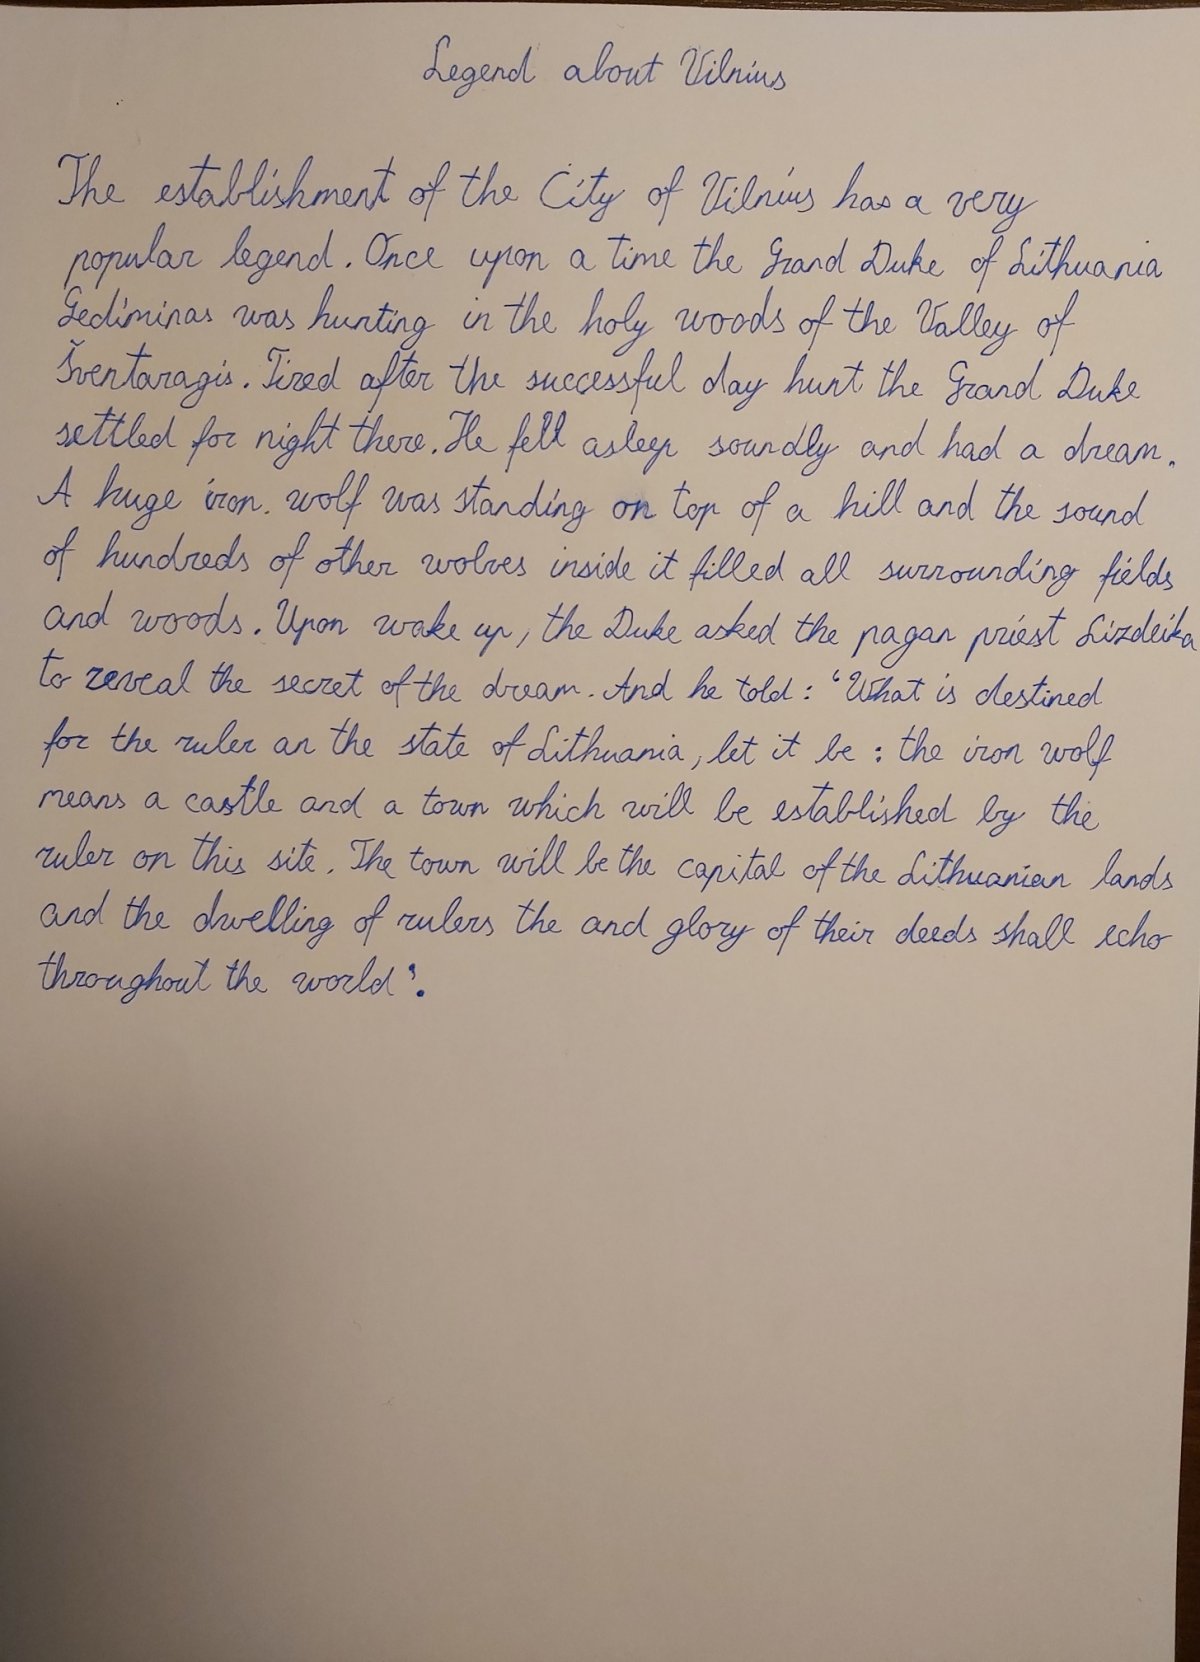 Legend about Vilnius
The establishment of the City of Vilnius has a very
popular legend. Once upon a time the Grand Duke of Lithuania
Gediminas was hunting in the holy woods of the Valley of
Šventaragis. Tired after the successful day hunt the Grand Duke
settled for night there. He fell asleep soundly and had a dream.
A huge iron. wolf was standing on top of a hill and the sound
of hundreds of other wolves inside it filled all surrounding fields
and woods. Upon wake up, the Duke asked the pagan priest Lizdeika
to reveal the secret of the dream. And he told: ‘What is destined
for the ruler an the state of Lithuania, let it be: the iron wolf
means a castle and a town which will be established by the
ruler on this site. The town will be the capital of the Lithuanian lands
and the dwelling of rulers the and glory of their deeds shall echo
throughout the world’.